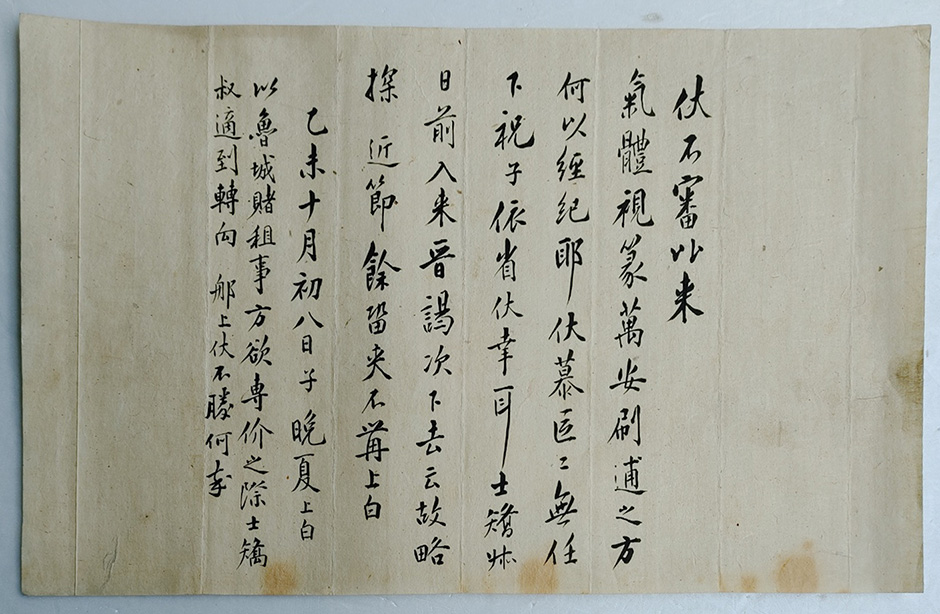 伏不審比来
氣體視篆萬安刷逋之方
何以經紀耶伏慕區〻無任
下祝子依省伏幸耳士矯叔
日前入来晋謁次下去云故略
探 近節餘留夾不備上白
乙未十月初八日子晩夏上白
以魯城賭租事方欲専价之際士矯
叔適到轉向 那上伏不勝何幸